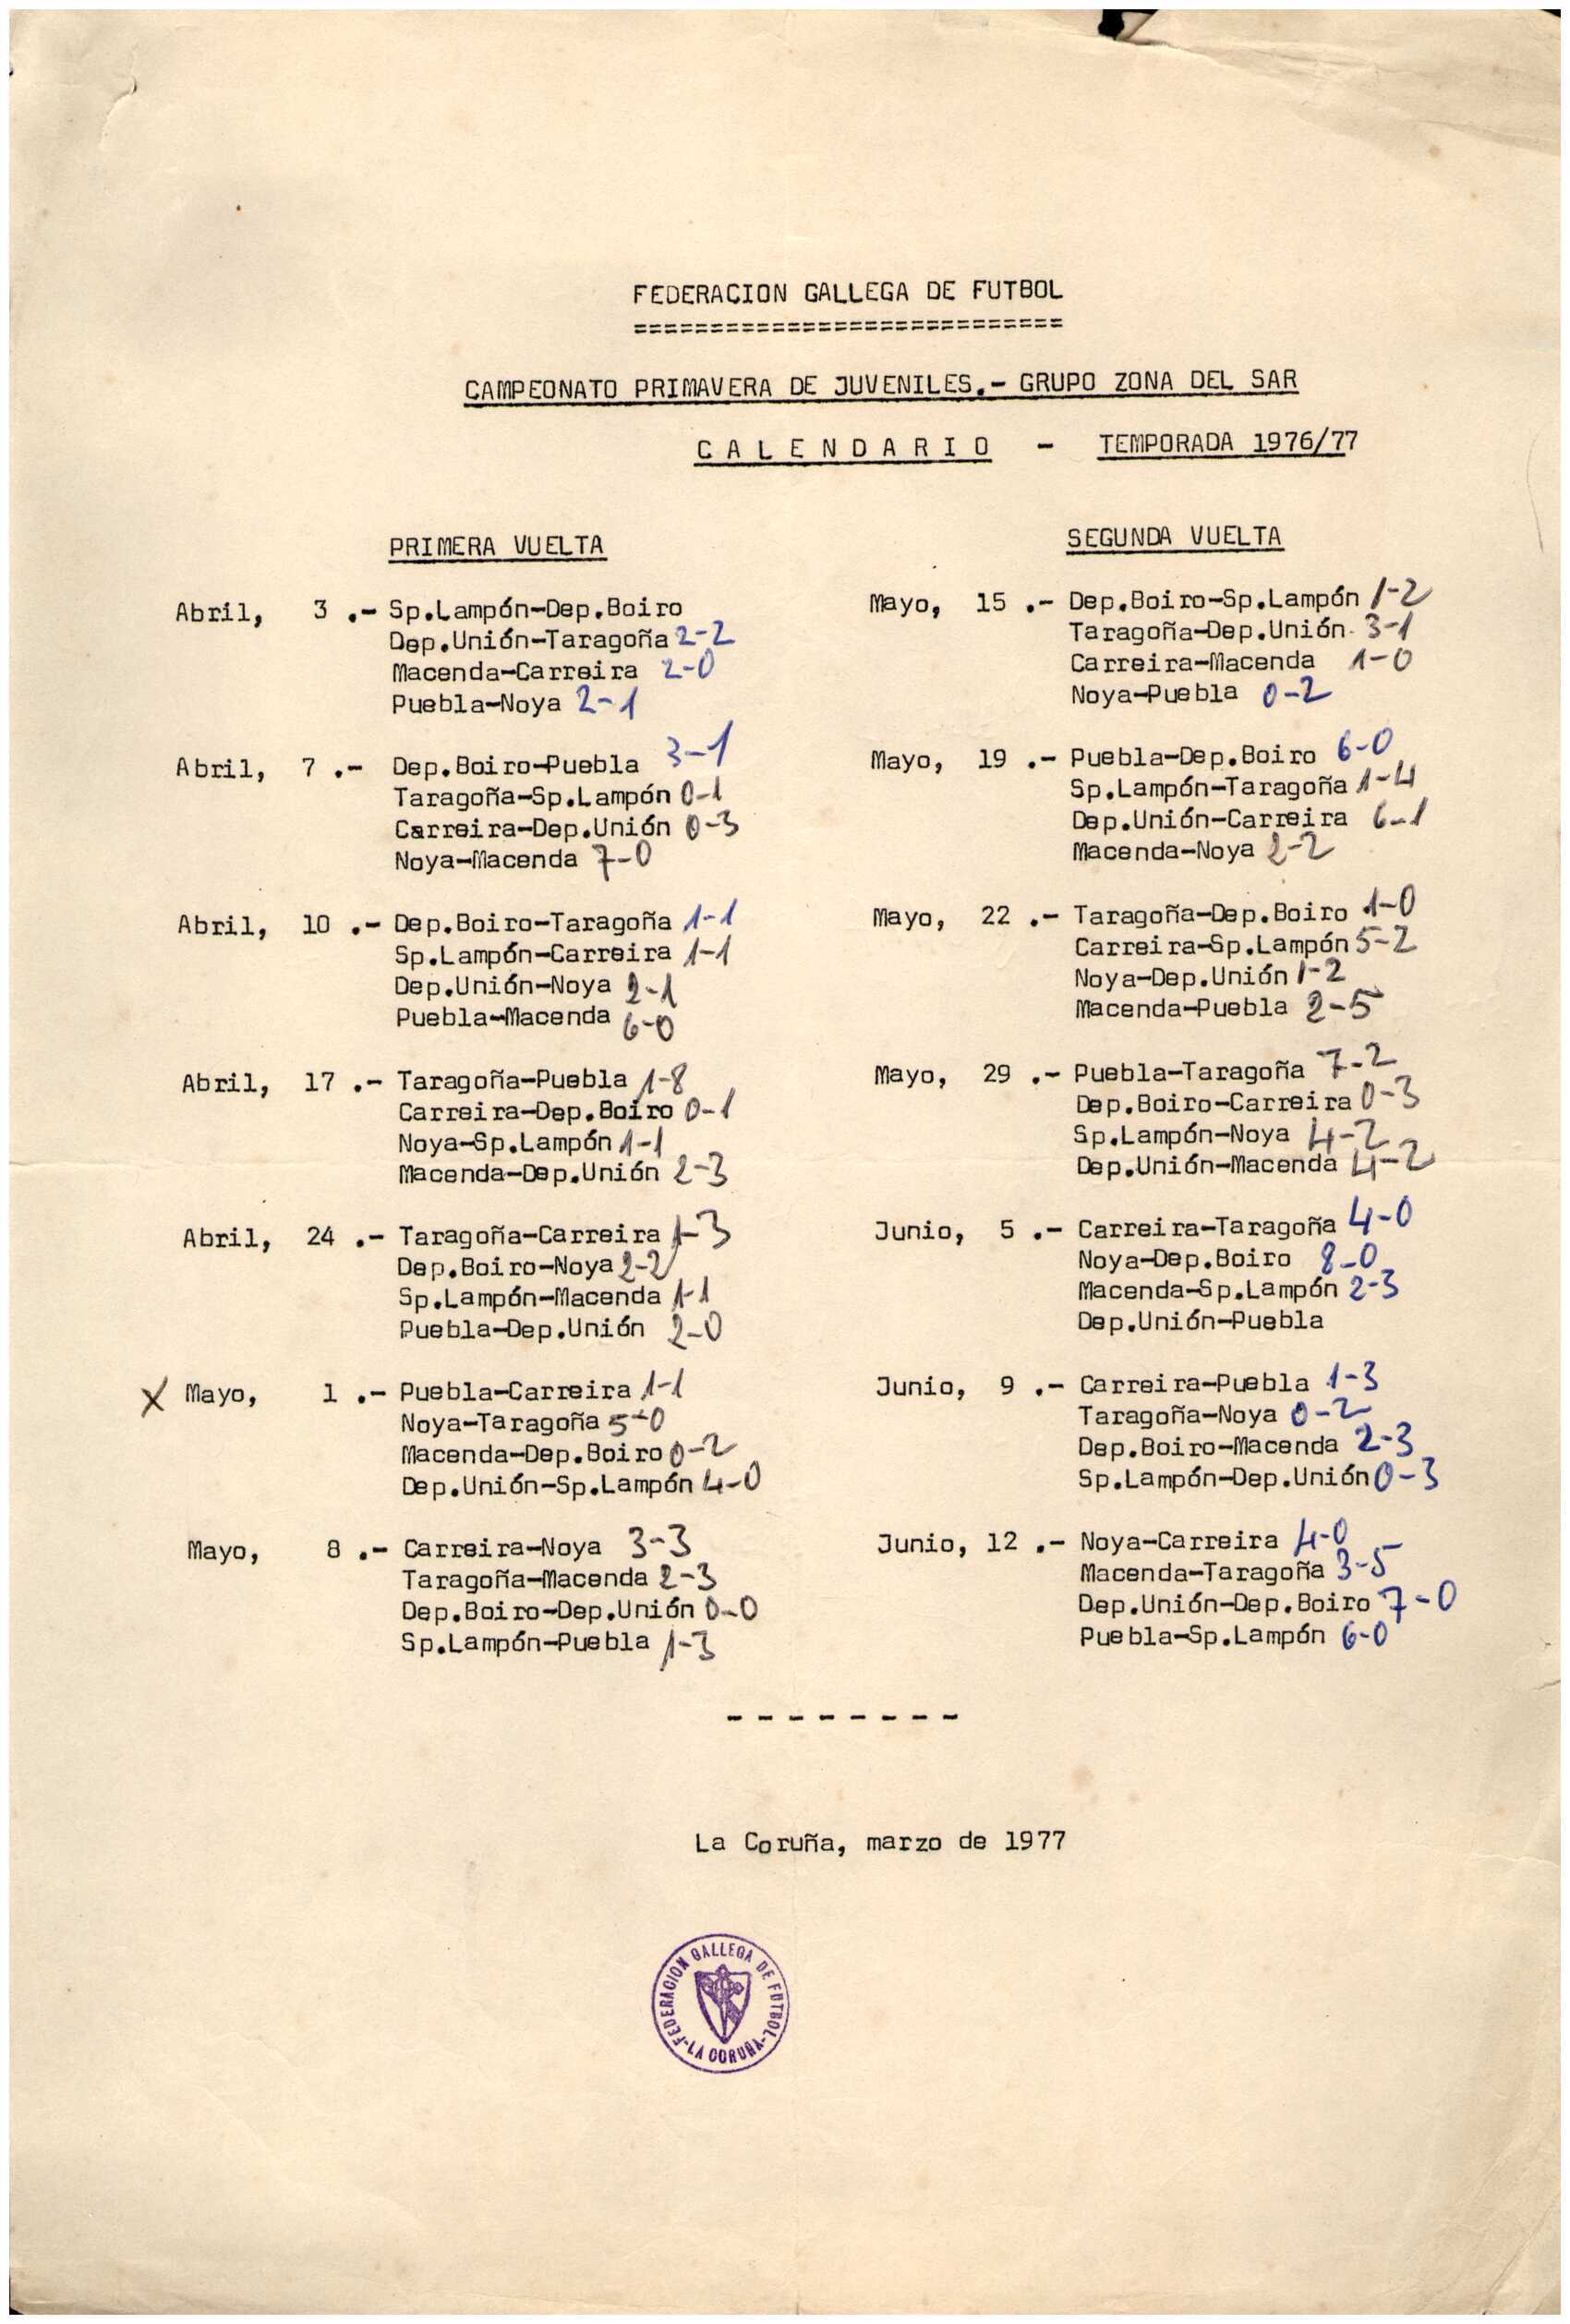 FEDERACION GALLEGA DE FUTBOL
============================
CAMPEONATO PRIMAVERA DE JUVENILES.- GRUPO ZONA DEL SAR
C A L E N D A R I O - TEMPORADA 1976/77
PRIMERA VUELTA
Abril, 3 .- Sp.Lampón-Dep.Boiro
Dep.Unión-Taragoña 2-2
Macenda-Carreira 2-0
Puebla-Noya 2-1
Abril, 7 .- Dep.Boiro-Puebla 3-1
Taragoña-Sp.Lampón 0-1
Carreira-Dep.Unión 0-3
Noya-Macenda 7-0
Abril, 10 .- Dep.Boiro-Taragoña 1-1
Sp.Lampón-Carreira 1-1
Dep.Unión-Noya 2-1
Puebla-Macenda 6-0
Abril, 17 .- Taragoña-Puebla 1-8
Carreira-Dep.Boiro 0-1
Noya-Sp.Lampón 1-1
Macenda-Dep.Unión 2-3
Abril, 24 .- Taragoña-Carreira 1-3
Dep.Boiro-Noya 2-2
Sp.Lampón-Macenda 1-1
Puebla-Dep.Unión 2-0
X Mayo, 1 .- Puebla-Carreira 1-1
Noya-Taragoña 5-0
Macenda-Dep.Boiro 0-2
Dep.Unión-Sp.Lampón 4-0
Mayo, 8 .- Carreira-Noya 3-3
Taragoña-Macenda 2-3
Dep.Boiro-Dep.Unión 0-0
Sp.Lampón-Puebla 1-3
SEGUNDA VUELTA
Mayo, 15 .- Dep.Boiro-Sp.Lampón 1-2
Taragoña-Dep.Unión 3-1
Carreira-Macenda 1-0
Noya-Puebla 0-2
Mayo, 19 .- Puebla-Dep.Boiro 6-0
Sp.Lampón-Taragoña 1-4
Dep.Unión-Carreira 6-1
Macenda-Noya 2-2
Mayo, 22 .- Taragoña-Dep.Boiro 1-0
Carreira-Sp.Lampón 5-2
Noya-Dep.Unión 1-2
Macenda-Puebla 2-5
Mayo, 29 .- Puebla-Taragoña 7-2
Dep.Boiro-Carreira 0-3
Sp.Lampón-Noya 4-2
Dep.Unión-Macenda 4-2
Junio, 5 .- Carreira-Taragoña 4-0
Noya-Dep.Boiro 8-0
Macenda-Sp.Lampón 2-3
Dep.Unión-Puebla
Junio, 9 .- Carreira-Puebla 1-3
Taragoña-Noya 0-2
Dep.Boiro-Macenda 2-3
Sp.Lampón-Dep.Unión 0-3
Junio, 12 .- Noya-Carreira 4-0
Macenda-Taragoña 3-5
Dep.Unión-Dep.Boiro 7-0
Puebla-Sp.Lampón 6-0
--------
La Coruña, marzo de 1977
FEDERACION GALLEGA DE FUTBOL
-LA CORUÑA-